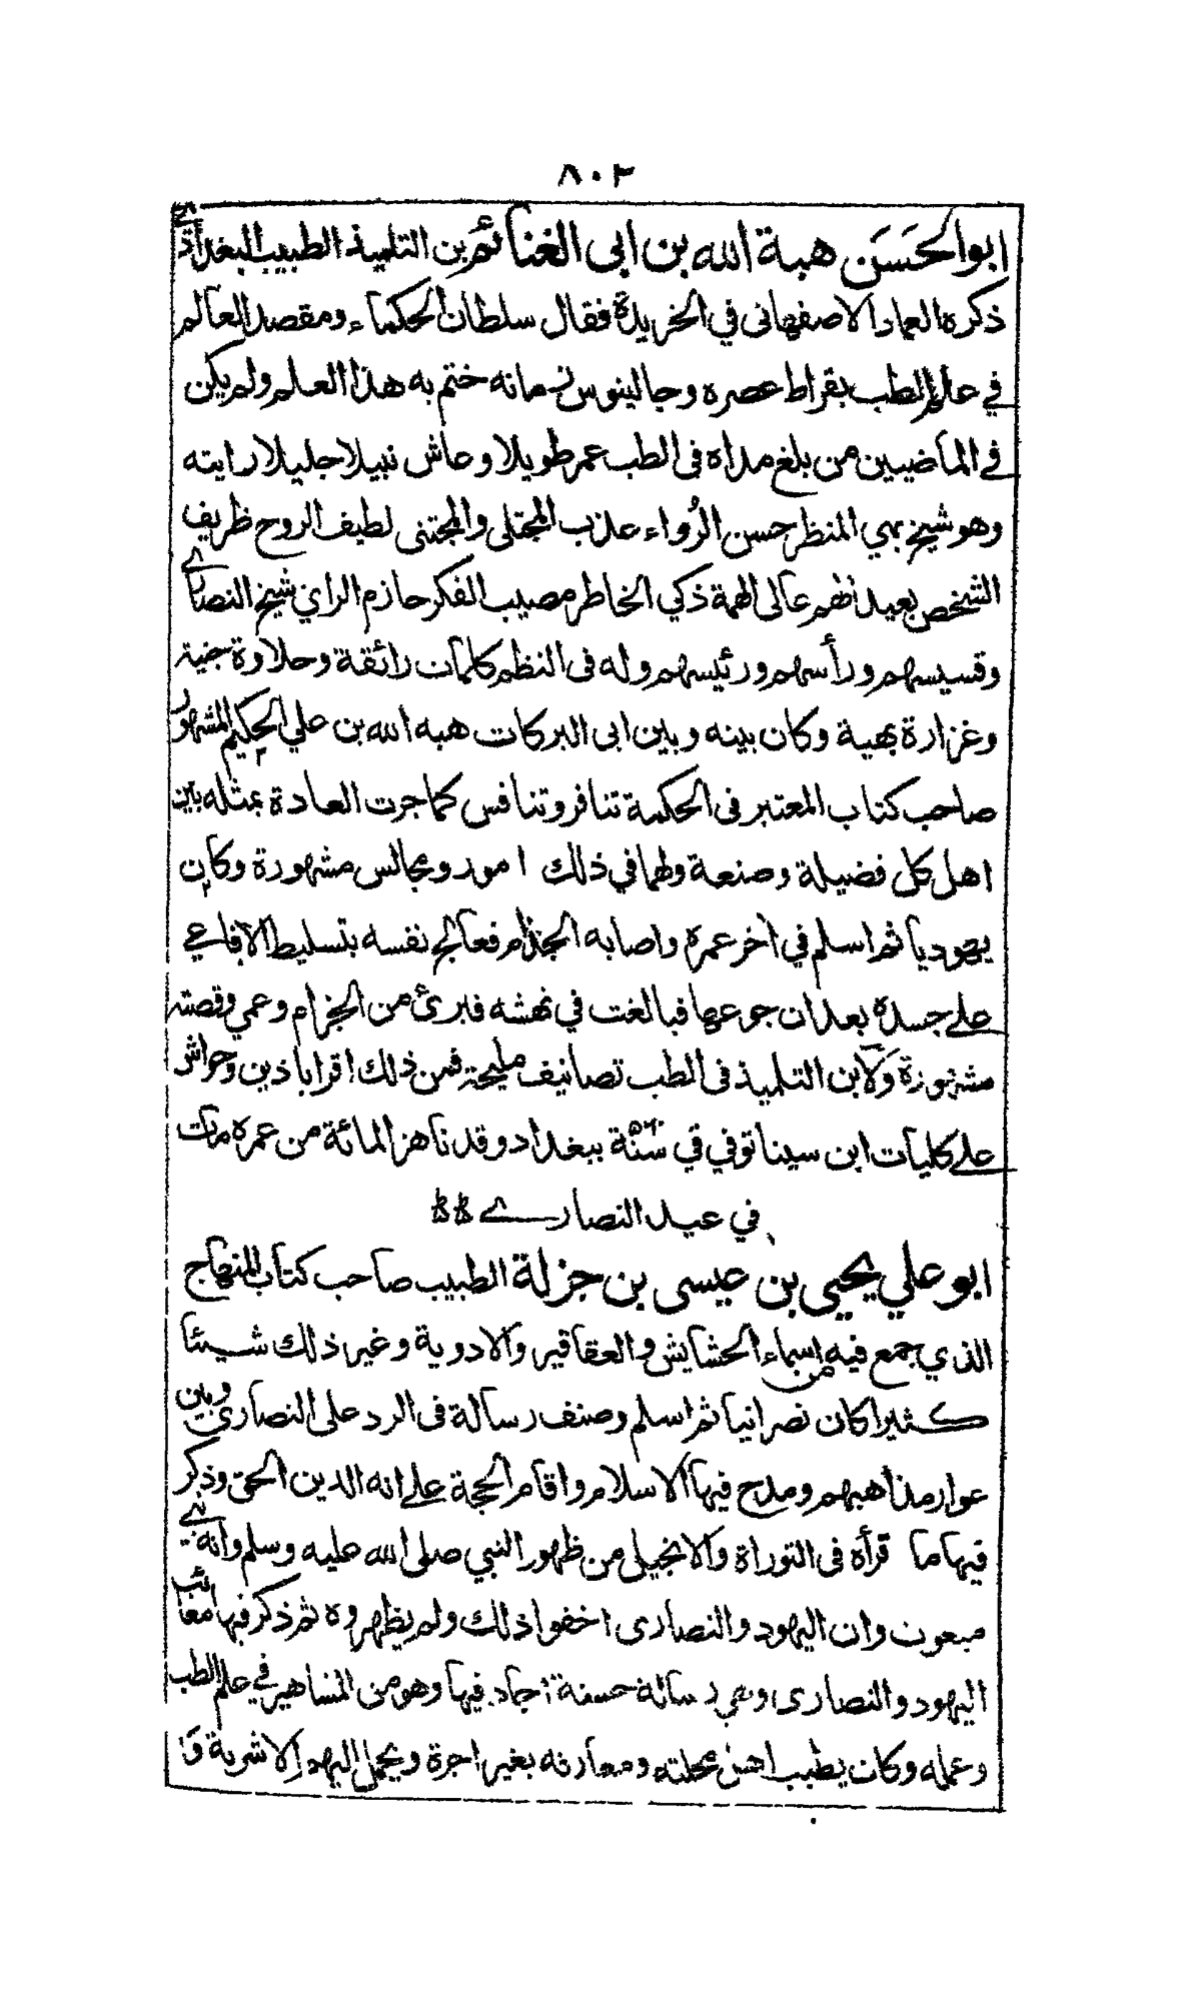 ٨٠٣
ابو الحَسَن هبة الله بن ابى الغنائم بن التلميذ الطبيب البغدادي
ذكره العماد الاصفهانى في الخريدة فقال سلطان الحكماء ومقصد العالم
في علم الطب بقراط عصره وجالينوس زمانه ختم به هذا العلم ولم يكن
في الماضيين من بلغ مداه فى الطب عمر طويلا وعاش نبيلا جليلا رايته
وهو شيخ بهي المنظر حسن الرُواء عذب المجتلى والمجتنى لطيف الروح ظريف
الشخص بعيد الهم عالى الهمة ذكي الخاطر مصيب الفكر حازم الراي شيخ النصارى
وقسيسهم ورأسهم ورئيسهم وله فى النظم كلمات رائقة وحلاوة جنية
وغزارة بهية وكان بينه وبين ابى البركات هبه الله بن علي الحكيم المشهور
صاحب كتاب المعتبر فى الحكمة تنافر وتنافس كما جرت العادة بمثله بين
اهل كل فضيلة وصنعة ولهما في ذلك امور ومجالس مشهورة وكان
يهوديا ثم اسلم في آخر عمره واصابه الجذام فعالج نفسه بتسليط الافاعي
على جسده بعد ان جوعها فبالغت في نهشه فبرئ من الجزام وعمي وقصته
مشهورة ولابن التلميذ فى الطب تصانيف مليحة فمن ذلك اقراباذين وحواش
على كليات ابن سينا توفي في سنة ٥٦٠ ببغداد وقد ناهز المائة من عمره مات
في عيد النصارى
ابو علي يحيى بن عيسى بن جزلة الطبيب صاحب كتاب المنهاج
الذي جمع فيه من اسماء الحشايش والعقاقير والادوية وغير ذلك شيئا
كثيرا كان نصرانيا ثم اسلم وصنف رسالة فى الرد على النصارى وبين
عوار مذاهبهم ومدح فيها الاسلام واقام الحجة على انه الدين الحق وذكر
فيها ما قرأه فى التوراة والانجيل من ظهور النبي صلى الله عليه وسلم وانه نبي
مبعوث وان اليهود والنصارى اخفوا ذلك ولم يظهروه ثم ذكر فيها معائب
اليهود والنصارى وهي رسالة حسنة اجاد فيها وهو من المشاهير في علم الطب
وعمله وكان يطبب اهل محلته ومعارفه بغير اجرة ويحمل اليهم الاشربة و